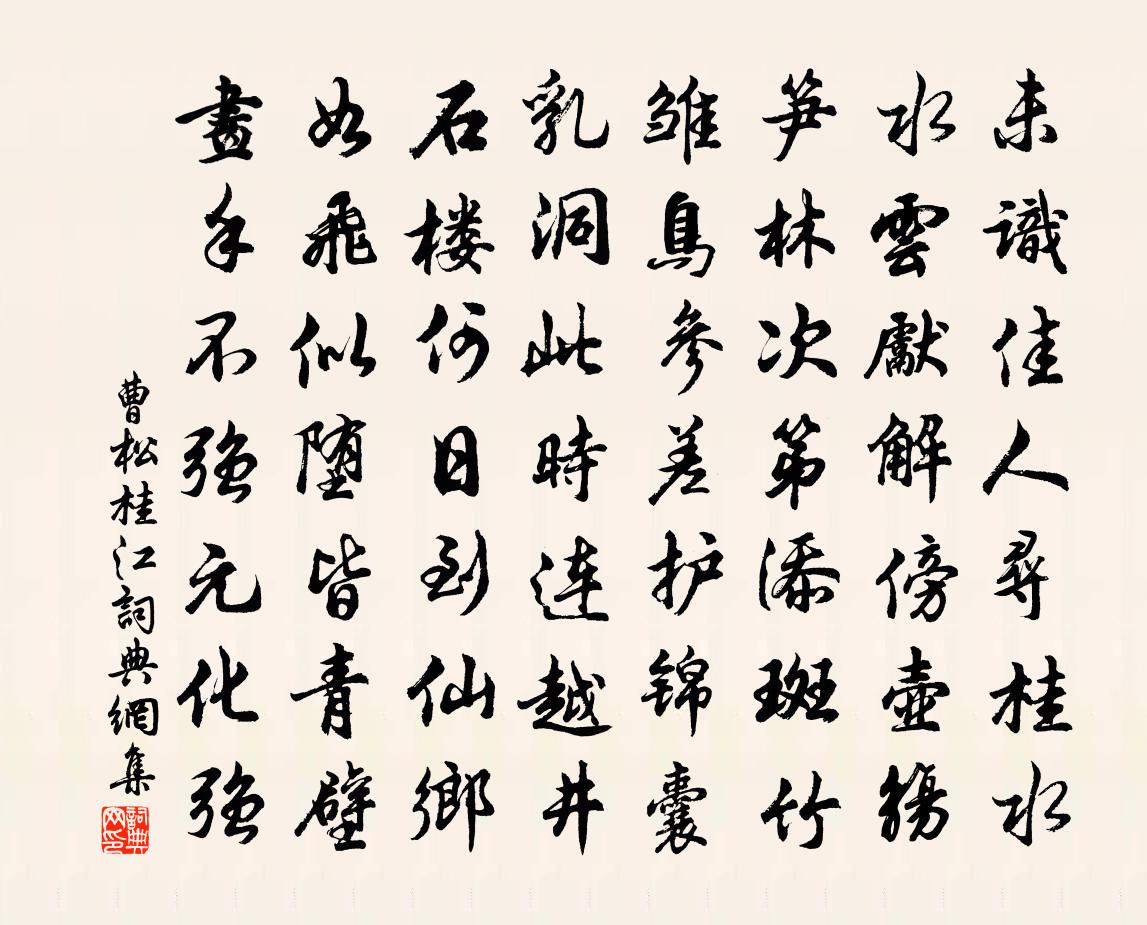 未識佳人尋桂水
水雲獻解傍壺觴
笋林次第添斑竹
雏鳥參差护锦囊
乳洞此時連越井
石楼何日到仙鄉
如飛似堕皆青壁
畫手不強元化強
曹松桂江詞典網集
詞典网印